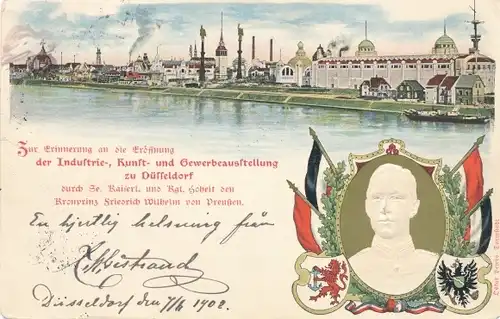 Zur Erinnerung an die Eröffnung
der Industrie-, Kunst- und Gewerbeausstellung
zu Düsseldorf
durch Se. Kaiserl. und Kgl. Hoheit den
Kronprinz Friedrich Wilhelm von Preußen.
En hjertlig helsning från
Düsseldorf den 7/6 1902.